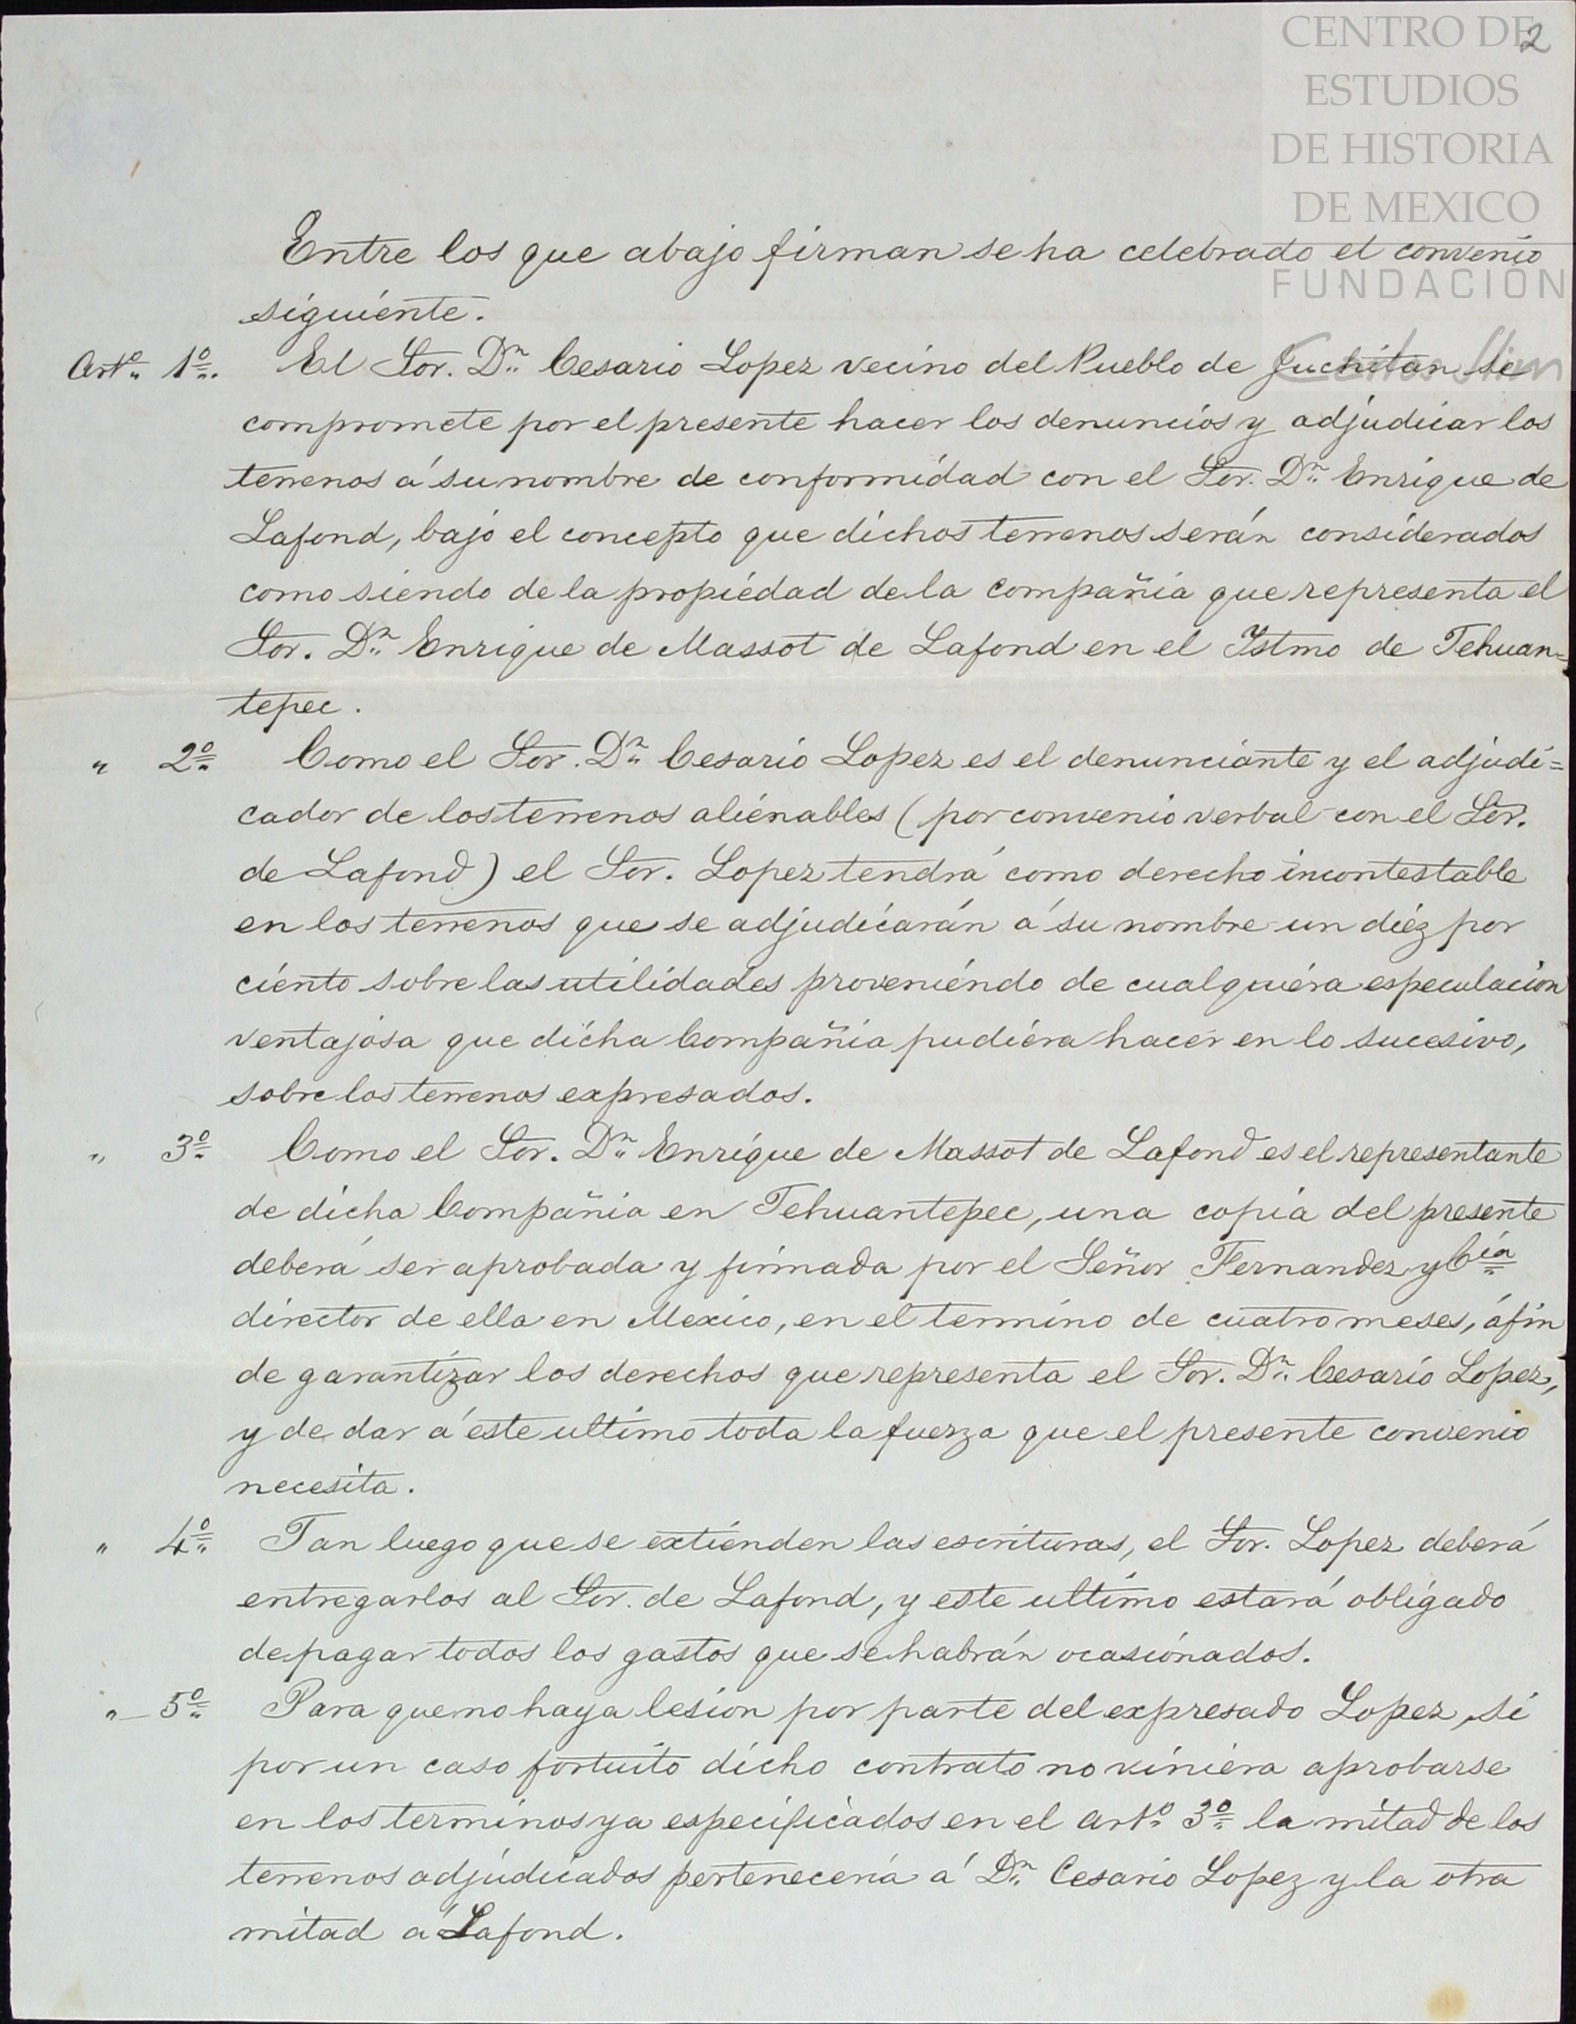 CENTRO DE
ESTUDIOS
DE HISTORIA
DE MEXICO
FUNDACIÓN
Carlos Slim
2
Entre los que abajo firman se ha celebrado el convenio
siguiente.
Artº 1º. El Sor. Dn Cesario Lopez vecino del Pueblo de Juchitan se
compromete por el presente hacer los denuncios y adjudicar los
terrenos á su nombre de conformidad con el Sor. Dn Enrique de
Lafond, bajo el concepto que dichos terrenos serán considerados
como siendo de la propiedad de la Compañia que representa el
Sor. Dn Enrique de Massot de Lafond en el Ystmo de Tehuan=
tepec.
" 2º Como el Sor. Dn Cesario Lopez es el denunciante y el adjudi=
cador de los terrenos alienables (por convenio verbal con el Sor.
de Lafond) el Sor. Lopez tendrá como derecho incontestable
en los terrenos que se adjudicarán á su nombre un diez por
ciento sobre las utilidades proveniendo de cualquiera especulacion
ventajosa que dicha Compañia pudiera hacer en lo sucesivo,
sobre los terrenos expresados.
" 3º Como el Sor. Dn Enrique de Massot de Lafond es el representante
de dicha Compañia en Tehuantepec, una copia del presente
deberá ser aprobada y firmada por el Señor Fernandez y Cia
director de ella en Mexico, en el termino de cuatro meses, áfin
de garantizar los derechos que representa el Sor. Dn Cesario Lopez,
y de dar á este ultimo toda la fuerza que el presente convenio
necesita.
" 4º Tan luego que se extienden las escrituras, el Sor. Lopez deberá
entregarlos al Sor. de Lafond, y este ultimo estará obligado
de pagar todos los gastos que se habrán ocasionados.
" 5º Para que no haya lesion por parte del expresado Lopez, si
por un caso fortuito dicho contrato no viniera aprobarse
en los terminos ya especificados en el artº 3º la mitad de los
terrenos adjudicados perteneceria á Dn Cesario Lopez y la otra
mitad á Lafond.